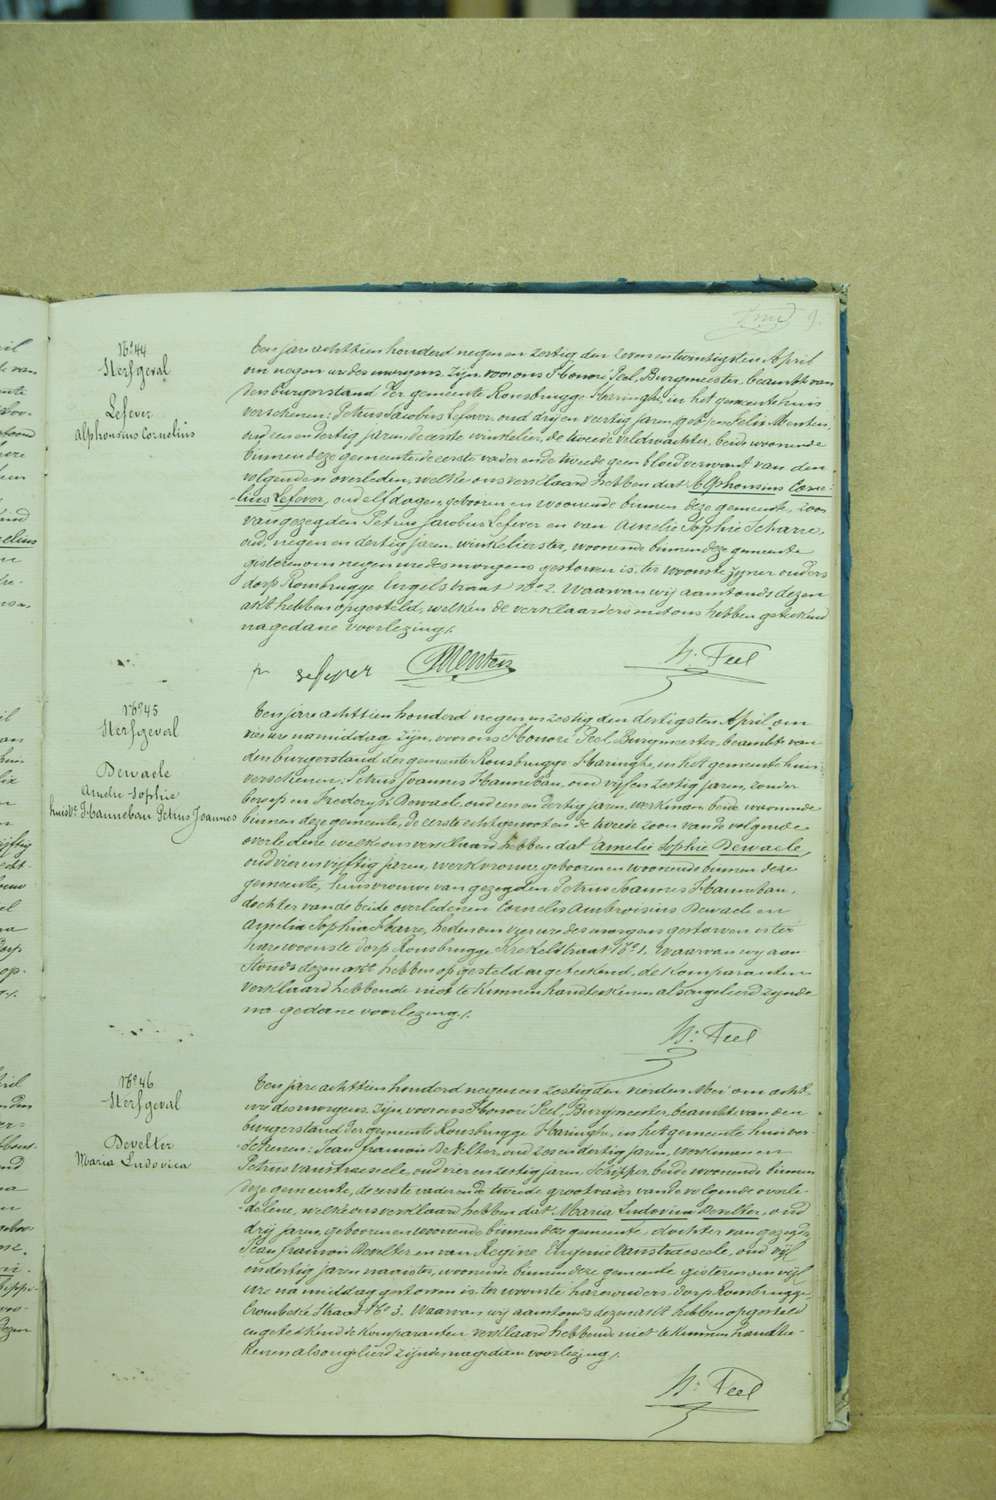 9.
No. 44
Sterfgeval
Lefever
Alphonsius Cornelius
Een jare achttien honderd negen en zestig den zeven en twintigsten April
om negen ure des morgens. Zijn voor ons Honoré Peel, Burgmeester, beambte van
den burgerstand der gemeente Rousbrugge-Haringhe, in het gemeentehuis
verschenen: Petrus Jacobus Lefever, oud drij en veertig jaren, en Felix Menten,
oud een en dertig jaren, de eerste winkelier, de tweede veldwachter, beide woonende
binnen deze gemeente, de eerste vader en de tweede geen bloedverwant van den
volgenden overleden, welke ons verklaard hebben dat Alphonsius Corne-
-lius Lefever, oud elf dagen, geboren en woonende binnen deze gemeente, zoon
van gezegden Petrus Jacobus Lefever en van Amelie Sophie Scharre,
oud negen en dertig jaren, winkelierster, woonende binnen deze gemeente
gisteren om negen ure des morgens gestorven is, ter woonste zijner ouders
dorp Rousbrugge Engelstraat No. 2. Waarvan wij aanstonds dezen
akt hebben opgesteld, welken de verklaarders met ons hebben geteekend
na gedane voorlezing/.
p lefever Menten H. Peel
No. 45
Sterfgeval
Dewaele
Amelie-Sophie
huisve. Hannebau Petrus Joannes
Een jare achttien honderd negen en zestig den dertigsten April om
vier ure namiddag, zijn voor ons Honoré Peel, Burgmeester, beambte van
den burgerstand der gemeente Rousbrugge-Haringhe, in het gemeente huis
verschenen, Petrus Joannes Hannebau, oud vijf en zestig jaren, zonder
beroep en Frederijk Dewaele, oud een en dertig jaren, werkman beide woonende
binnen deze gemeente, de eerste echtgenoot en de tweede zoon van de volgende
overledene welke ons verklaard hebben dat Amelie Sophie Dewaele,
oud vier en vijftig jaren, werkvrouw, geboren en woonende binnen deze
gemeente, huisvrouwe van gezegden Petrus Joannes Hannebau,
dochter van de beide overledenen Cornelis Ambrosius Dewaele en
Amelia Sophia Harre, heden om vier ure des morgens gestorven is ter
hare woonste dorp Rousbrugge, Krekelstraat No. 1. Waarvan wij aan
stonds dezen akt hebben opgesteld en geteekend, de komparanten
verklaard hebbende niet te kunnen handteekenen als ongeleerd zijnde
na gedane voorlezing/.
H. Peel
No. 46
Sterfgeval
Develter
Maria Ludovica
Een jare achttien honderd negen en zestig den eersten Mei om acht
ure des morgens. Zijn voor ons Honoré Peel, Burgmeester, beambte van den
burgerstand der gemeente Rousbrugge-Haringhe, in het gemeente huis ver-
-schenen: Jean François Develter, oud zes en dertig jaren, werkman en
Petrus Vanstraesele, oud vier en zestig jaren, Schipper, beide woonende binnen
deze gemeente, de eerste vader en de tweede grootvader van de volgende overle-
-dene, welke ons verklaard hebben dat Maria Ludovica Develter, oud
drij jaren, geboren en woonende binnen deze gemeente, dochter van gezegde
Jean François Develter en van Regine Eugenie Vanstraesele, oud vijf
en dertig jaren naaister, woonende binnen deze gemeente gisteren om vijf
ure na middag gestorven is, ter woonste harer ouders dorp Rousbrugge
Crombeke Straat No. 3. Waarvan wij aanstonds dezen akt hebben opgesteld
en geteekend de komparanten verklaard hebbende niet te kunnen handtee-
kenen als ongeleerd zijnde, na gedane voorlezing/.
H. Peel